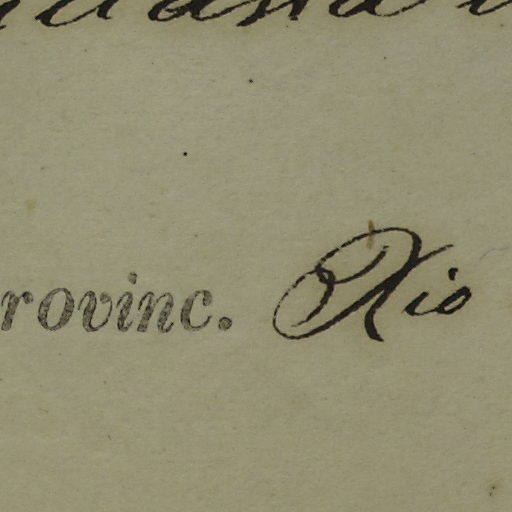 rovinc. Rio